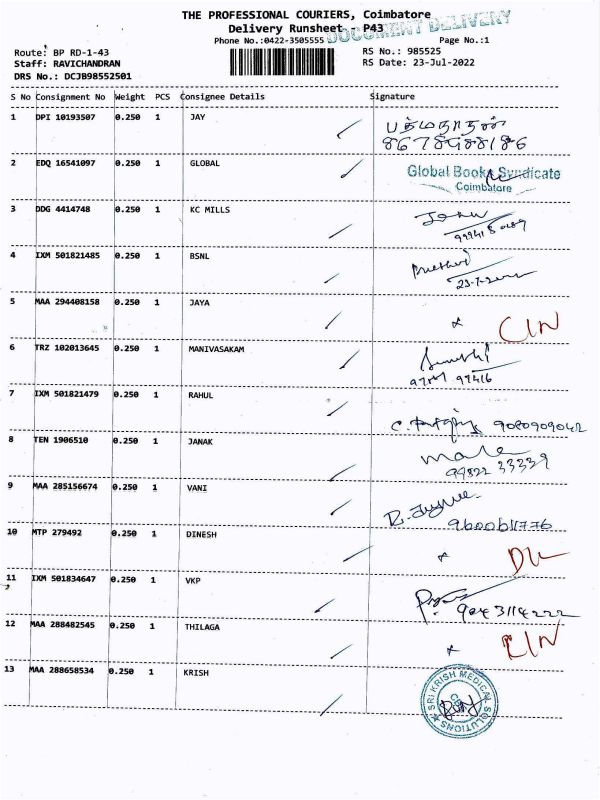 THE PROFESSIONAL COURIERS, Coimbatore
Delivery Runsheet - P43
DOCUMENT DELIVERY
Phone No.:0422-3505555 Page No.:1
Route: BP RD-1-43 RS No.: 985525
Staff: RAVICHANDRAN RS Date: 23-Jul-2022
DRS No.: DCJB98552501
S No Consignment No Weight PCS Consignee Details Signature
1 DPI 10193507 0.250 1 JAY பத்மநாதன்
8678988186
2 EDQ 16541097 0.250 1 GLOBAL Global Books Syndicate
Coimbatore
3 DDG 4414748 0.250 1 KC MILLS John
4 IXM 501821485 0.250 1 BSNL
23-7-2022
5 MAA 294408158 0.250 1 JAYA CIN
6 TRZ 102013645 0.250 1 MANIVASAKAM
7 IXM 501821479 0.250 1 RAHUL
C. 9080909042
8 TEN 1906510 0.250 1 JANAK Mala
99822 33339
9 MAA 285156674 0.250 1 VANI
9600611776
10 MTP 279492 0.250 1 DINESH DL
11 IXM 501834647 0.250 1 VKP
9043114222
12 MAA 288482545 0.250 1 THILAGA CIN
13 MAA 288658534 0.250 1 KRISH SRI KRISH MEDICAL SOLUTIONS